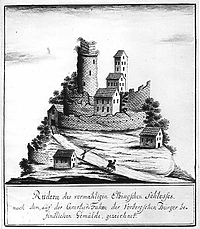 Rudera des vormahligen Elbingschen Schlosses.
nach dem, auf der Cämerei-Fahne der Vorbergschen Bürger be-
findlichen Gemälde, gezeichnet.